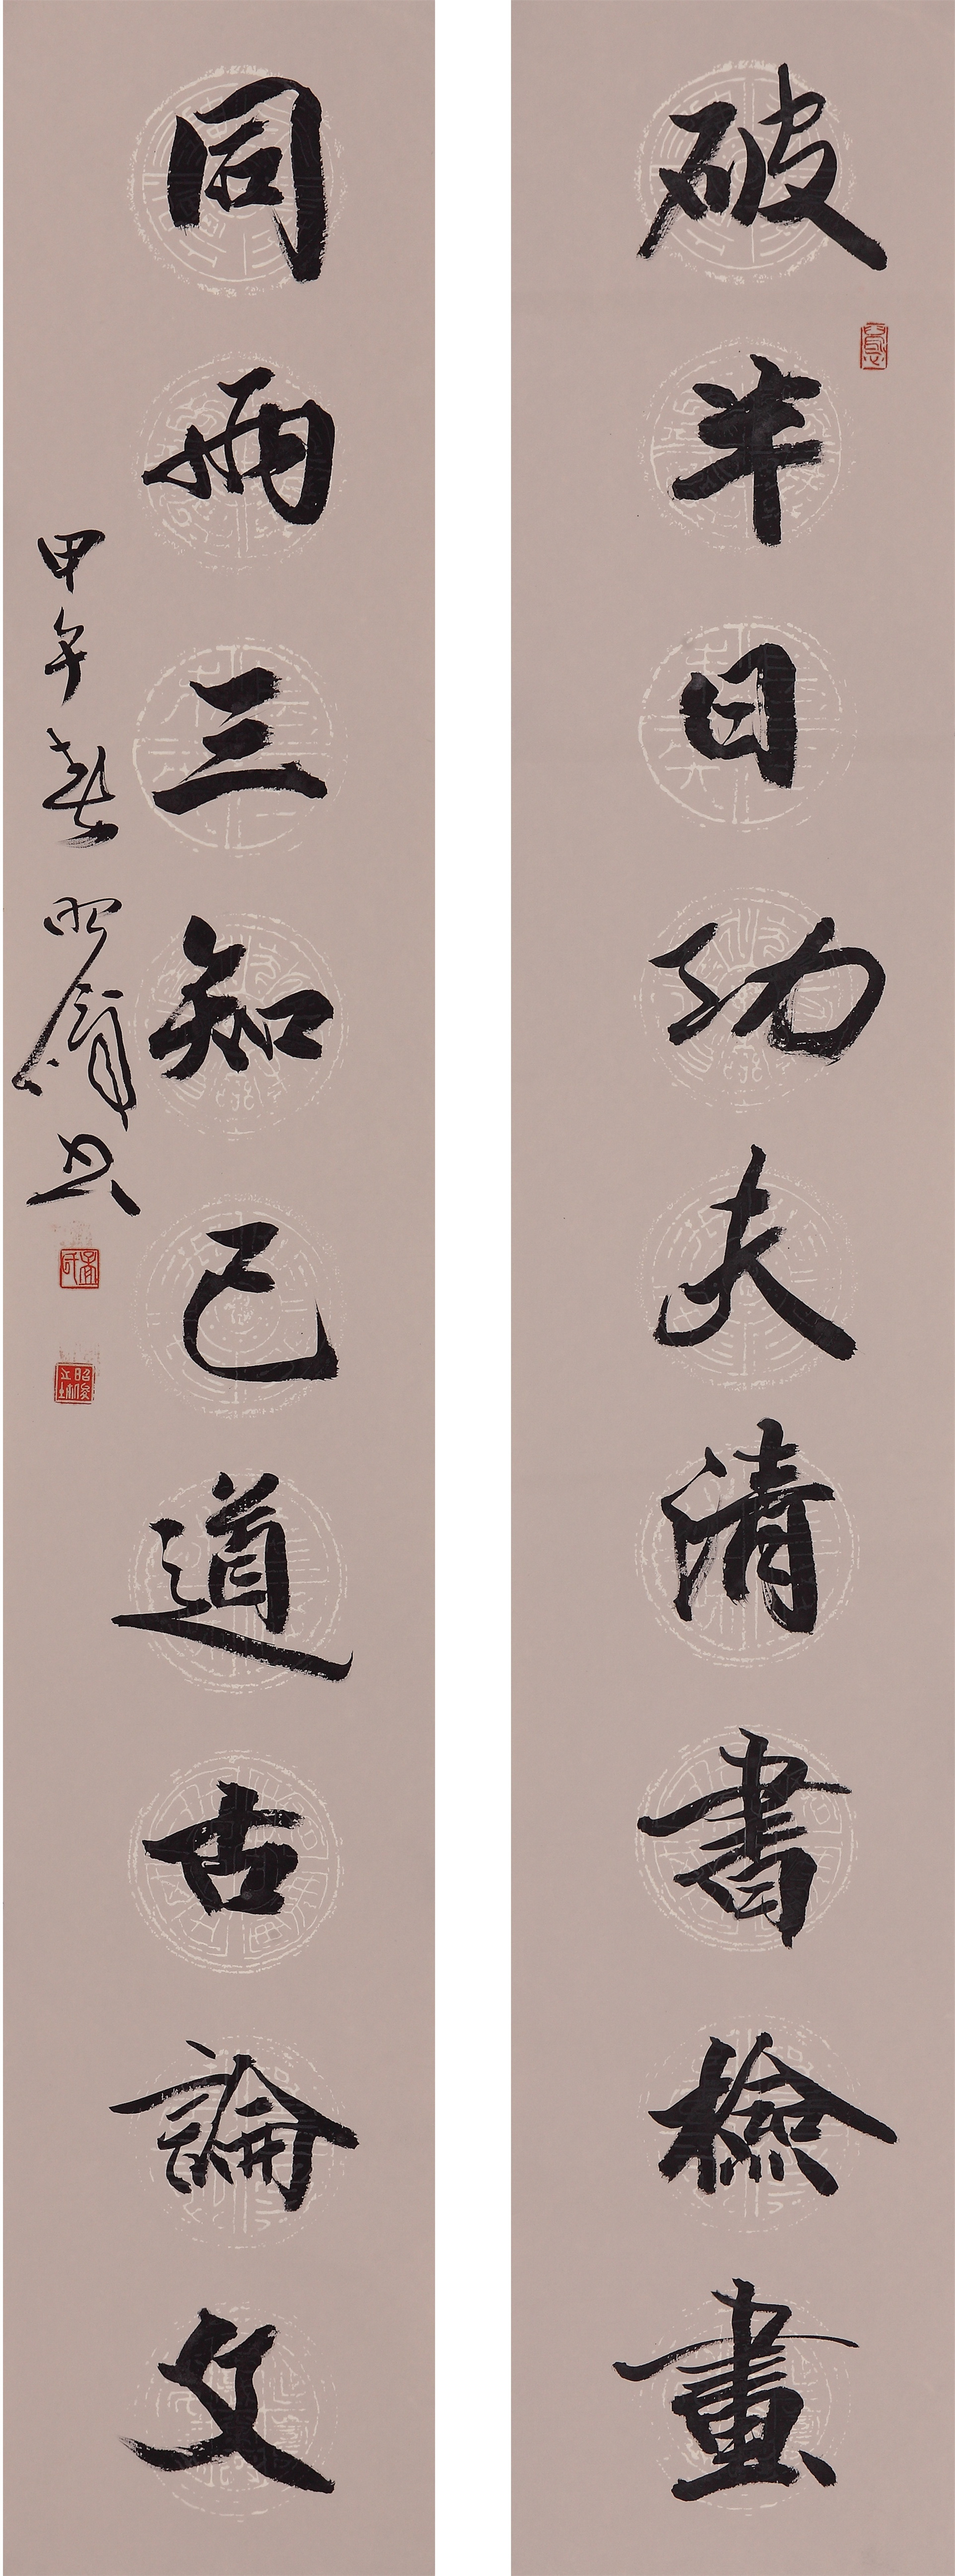 破半日功夫清書檢畫
同兩三知己道古論文
甲午春 昭俊書